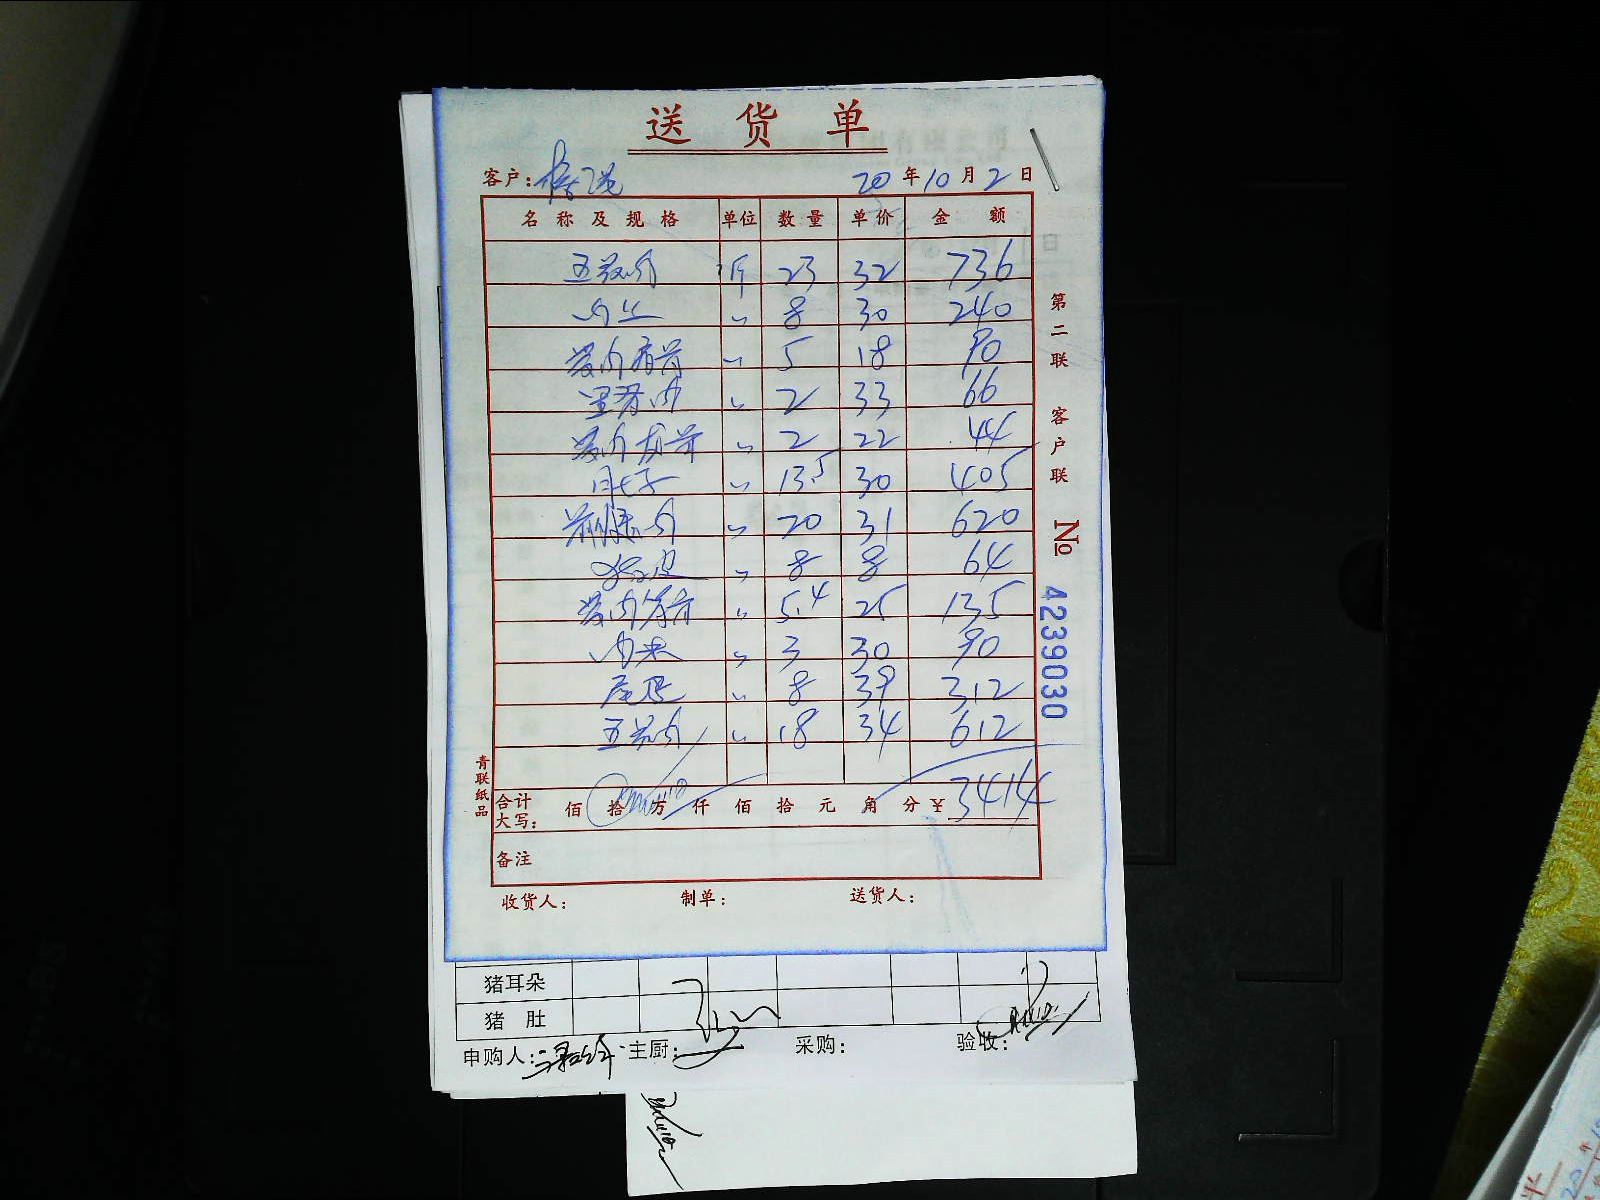 送货单
客户: 20年10月2日
名称及规格 单位 数量 单价 金额
五花肉 斤 23 32 736
〃 8 30 240
〃 5 18 90
里脊肉 〃 2 33 66
〃 2 22 44
肚子 〃 13.5 30 405
前腿肉 〃 20 31 620
猪皮 〃 8 8 64
〃 5.4 25 135
〃 3 30 90
〃 8 39 312
五花肉 〃 18 34 612
合计大写: 佰拾万仟佰拾元角分¥3414
备注
收货人: 制单: 送货人:
第二联 客户联 No 4239030
青联纸品
猪耳朵
猪肚
申购人: 主厨: 采购: 验收: